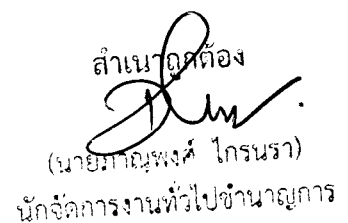 สำเนาถูกต้อง
(นายภาณุพงศ์ ไกรนรา)
นักจัดการงานทั่วไปชำนาญการ